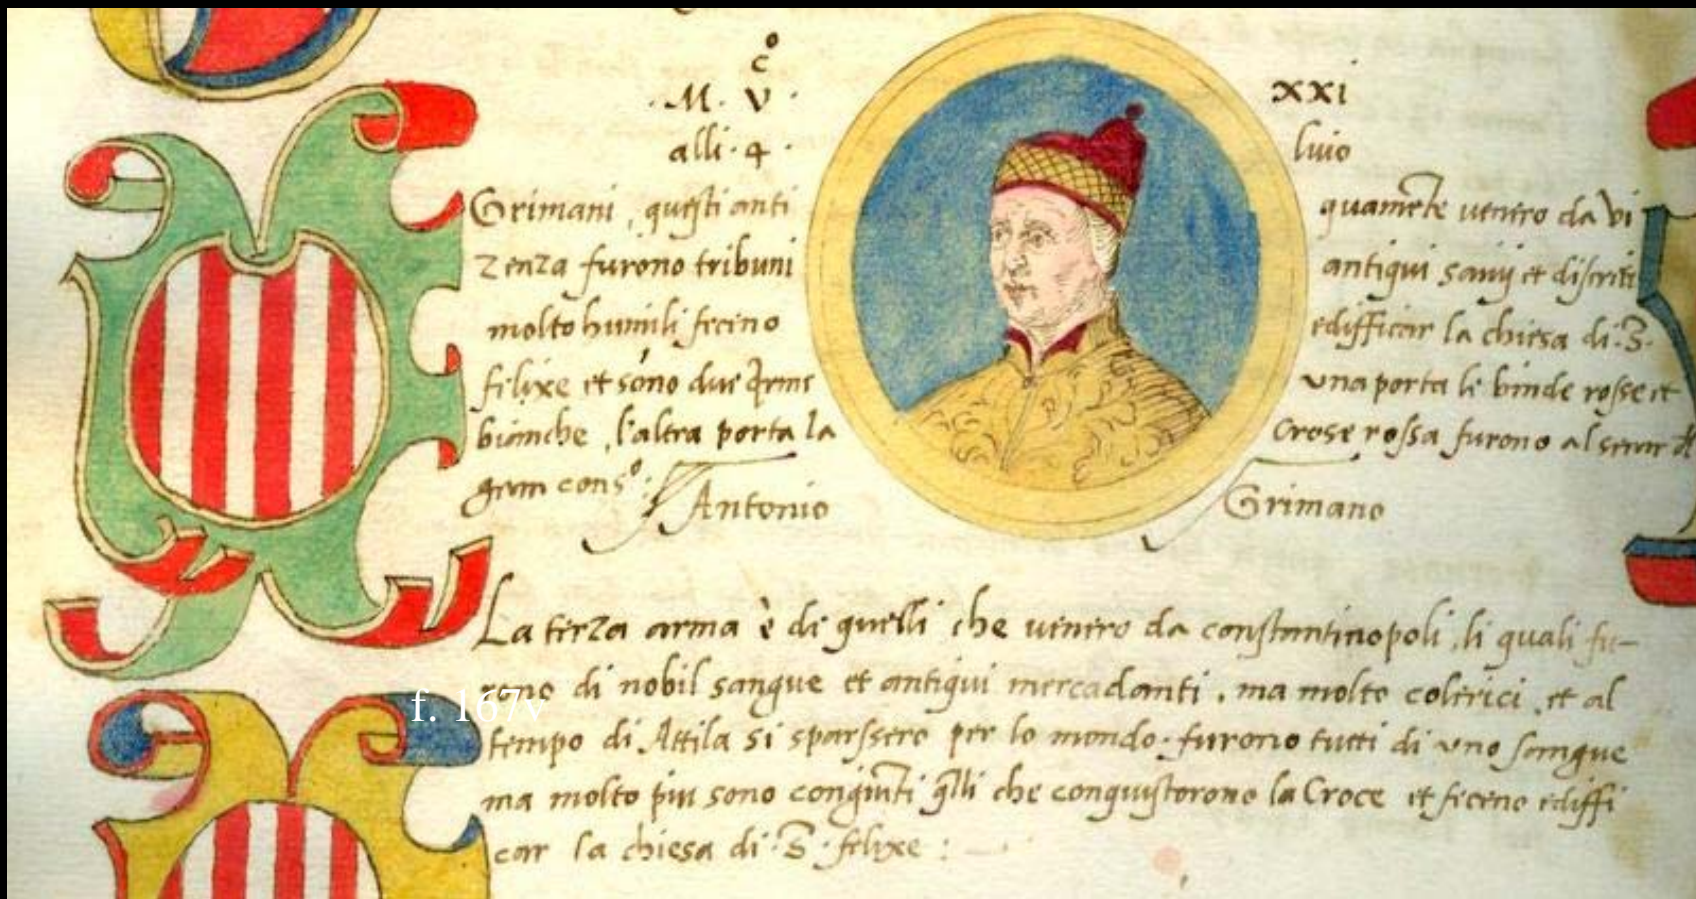 c°
.M. V. xxi
alli. 4. luio
Grimani, questi anti quamēte venero da Vi
zenza furono tribuni antiqui savij et discreti
molto humili feceno edifficar la chiesa di .S.
felixe et sono due Arme una porta le binde rosse et
bianche, l'altra porta la Crose rossa furono al serar dl
gran cons°:
Antonio Grimano
La terza arma è de quelli che venero da constantinopoli, li quali fu-
reno di nobil sangue et antiqui mercadanti, ma molto colerici, et al
f. 167v
tempo di Attila si sparssero per lo mondo. furono tutti di uno sangue
ma molto piu sono congiūti q̄lli che conquistorono la Croce et feceno ediffi
car la chiesa di .S. felixe :